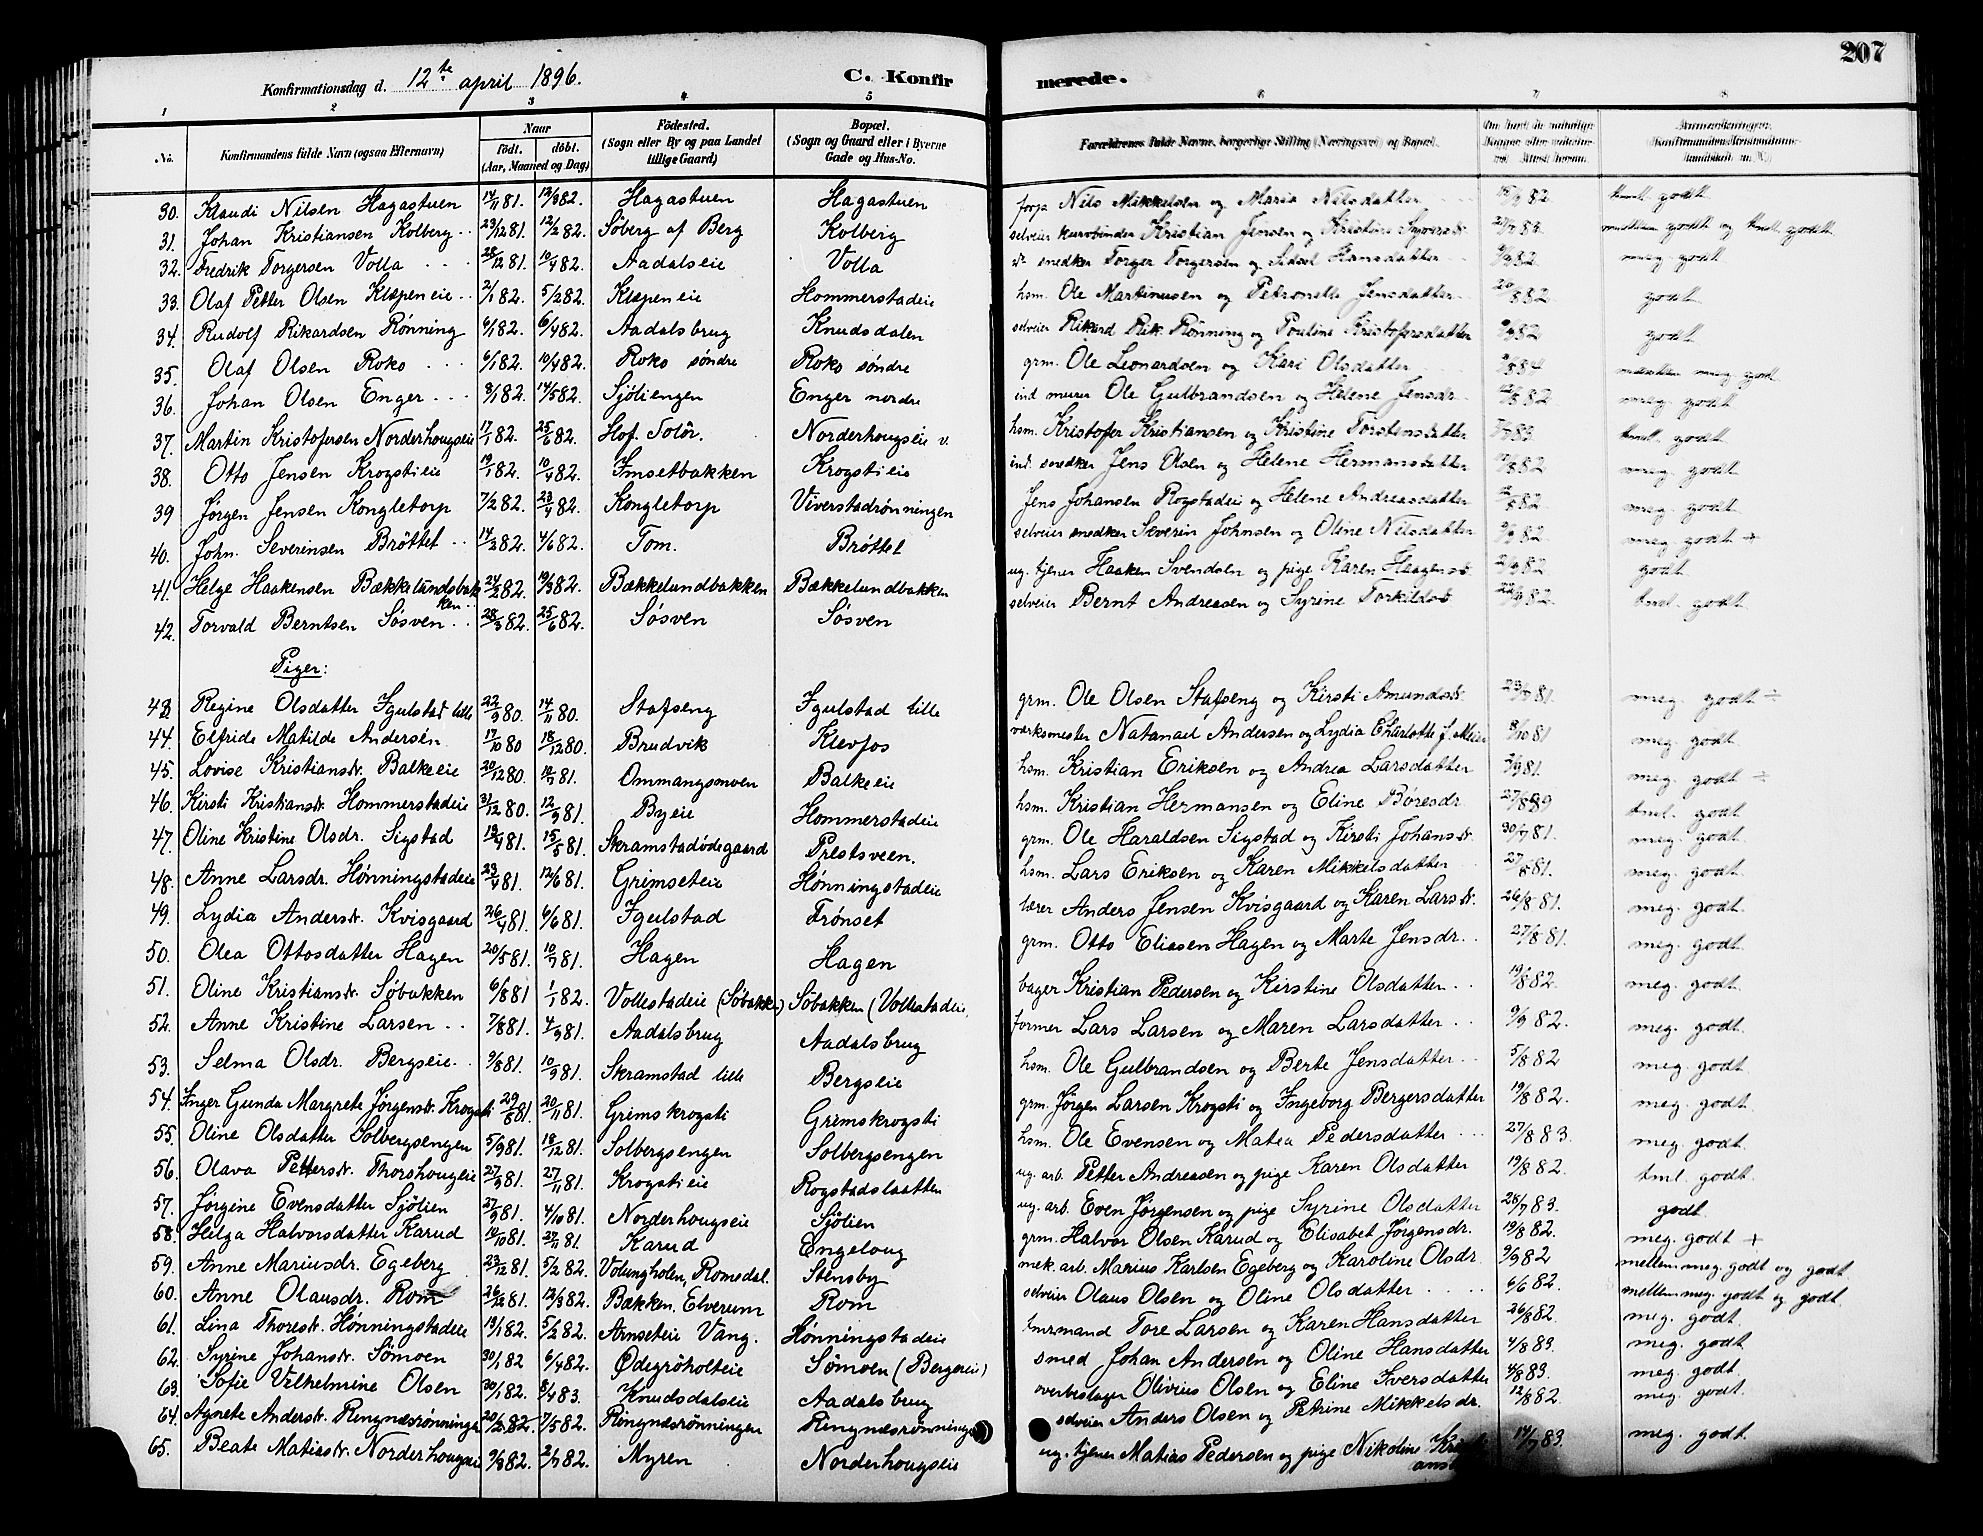 207
Konfirmationsdag d. 12te april 1896. C. Konfirmerede.
1 2 3 4 5 6 7 8
No. Konfirmandens fulde Navn (ogsaa Efternavn) Naar Födt. döbt. (Aar, Maaned og Dag) Födested. (Sogn eller By og paa Landet tillige Gaard) Bopæl. (Sogn og Gaard eller i Byerne Gade og Hus-No. Forældrenes fulde Navne, borgerlige Stilling (Næringsvei) og Bopæl.
30. Klaudi Nilsen Hagastuen 14/11 81. 12/3 82. Hagastuen Hagastuen Nils Mikkelsen og Maria Nilsdatter tml. godt
31. Johan Kristiansen Kolberg 23/12 81. 12/2 82. Söberg af Berg Kolberg selveier kurvbinder Kristian Jensen og mellem godt og tml. godt
32. Fredrik Torgersen Volla 28/12 81. 10/4 82. Aadalseie Volla snedker Torger Torgersen og Sidsel Hansdatter meg. godt
33. Olaf Petter Olsen Klæpeneie 2/1 82. 5/2 82. Klæpeneie Hommerstadeie hsm. Ole Martinusen og Petronelle Jensdatter 20/8 82 godt
34. Rudolf Rikardsen Rønning 6/1 82. 6/4 82. Aadalsbrug Knudsdalen selveier Rikard Rik. Rønning og Pouline Kristofersdatter godt
35. Olaf Olsen Roko 6/1 82. 10/4 82. Roko søndre Roko søndre grm. Ole Leonardsen og Kari Olsdatter meg. godt
36. Johan Olsen Enger 8/1 82. 14/5 82. Sjöliengen Enger nordre ind. murer Ole Gulbrandsen og Helene Jensdr. 12/8 82 meg. godt
37. Martin Kristofersen Norderhougseie 17/1 82. 25/6 82. Hof. Solör. Norderhougseie v. hsm. Kristofer Kristiansen og Kristine Torstensdatter tml. godt
38. Otto Jensen Krogstieie 19/1 82. 10/4 82. Imsetbakken Krogstieie ind. snedker Jens Olsen og Helene Hermansdatter meg. godt
39 Jörgen Jensen Kongletorp 7/2 82. 23/4 82. Kongletorp Viverstadrønningen Jens Johansen Rogstadeie og Helene Andreasdatter meg. godt
40. John. Severinsen Bröttet 14/2 82. 4/6 82. Tom. Bröttet selveier snedker Severin Johnsen og Oline Nilsdatter meg. godt +
41. Helge Haakensen Bækkelundsbakken 24/2 82. 19/3 82. Bækkelundbakken Bækkelundbakken ug. tjener Haaken Svendsen og pige Karen Haagensd. godt
42. Torvald Berntsen Søsven 28/3 82. 25/6 82. Søsven Søsven selveier Bernt Andreasen og Syrine Torkildsd. 22/9 82. tml. godt
Piger:
43. Regine Olsdatter Igulstad lille 22/9 80. 14/11 80. Stafseng Igulstad lille grm. Ole Olsen Stafseng og Kirsti Amundsd. 23/7 81. meg. godt ÷
44. Elfride Matilde Andersén 17/10 80 18/12 80. Brudvik Klevfos værksmester Natanael Andersen og Lydia Charlotte f. Meier 8/10 81 meg. godt
45. Lovise Kristiansdr. Balkeeie 20/12 80. 10/7 81. Ommangsmoen Balkeeie hsm. Kristian Eriksen og Andrea Larsdatter 3/9 81. meg. godt ÷
46. Kirsti Kristiansdr. Hommerstadeie 31/12 80. 12/9 81. Byeie Hommerstadeie hsm. Kristian Hermansen og Eline Böresdr. tml. godt
47. Oline Kristine Olsdr. Sigstad 19/4 81. 15/5 81. Skramstadødegaard Prestsveen. grm. Ole Haraldsen Sigstad og Kirsti Johansdr. 30/7 81. meg. godt.
48. Anne Larsdr. Hønningstadeie 23/4 81. 12/6 81. Grimseteie Hønningstadeie hsm. Lars Eriksen og Karen Mikkelsdatter 27/8 81. meg. godt.
49. Lydia Andersdr. Kvisgaard 26/4 81. 6/6 81. Igulstad Trönset lærer Anders Jensen Kvisgaard og Karen Larsdr. 26/8 81. meg. godt.
50. Olea Ottosdatter Hagen 20/5 81. 10/7 81. Hagen Hagen grm. Otto Eliasen Hagen og Marte Jensdr. 27/8 81. meg. godt.
51. Oline Kristiansdr. Söbakken 6/8 81 1/1 82. Vollestadeie (Söbakken) Söbakken (Vollestadeie) bager Kristian Pedersen og Kirstine Olsdatter 19/8 82. meg. godt.
52. Anne Kristine Larsen 7/8 81. 4/9 81. Aadalsbrug Aadalsbrug former Lars Larsen og Maren Larsdatter 9/9 82. meg. godt.
53. Selma Olsdr. Bergseie 9/8 81. 10/9 81. Skramstad lille Bergseie hsm. Ole Gulbrandsen og Berte Jensdatter 5/8 82 meg. godt.
54. Inger Gunda Margrete Jörgensdr. Krogsti 29/8 81. 20/11 81. Grimskrogsti Grimskrogsti grm. Jörgen Larsen Krogsti og Ingeborg Bergersdatter 19/8 82. meg. godt.
55. Oline Olsdatter Solbergsengen 5/9 81. 18/12 81. Solbergsengen Solbergsengen hsm. Ole Evensen og Matea Pedersdatter 27/8 83. meg. godt.
56. Olava Pettersdr. Thorshougeie 27/9 81. 27/11 81. Krogstieie Rogstadslaatten ug. arb. Petter Andreasen og pige Karen Olsdatter 19/8 82. tml. godt.
57. Jörgine Evensdatter Sjölien 27/9 81. 4/10 81. Norderhougseie Sjölien ug. arb. Even Jörgensen og pige Syrine Olsdatter 28/7 83. godt.
58. Helga Halvorsdatter Karud 10/10 81. 27/11 81. Karud Engeloug grm. Halvor Olsen Karud og Elisabet Jörgensdr. 19/8 82. meg. godt +
59. Anne Mariusdr. Egeberg 23/12 81. 5/2 82. Volungholen, Romsdal. Stensby mek. arb. Marius Karlsen Egeberg og Karoline Olsdr. 9/9 82 mellem meg. godt og godt.
60. Anne Olausdr. Rom 26/12 81. 12/3 82. Bækken, Elverum Rom selveier Olaus Olsen og Oline Olsdatter 6/6 82. mellem meg. godt og godt.
61. Lina Thoresdr. Hønningstadeie 19/1 82. 5/2 82. Arnseteie Vang. Hønningstadeie Tore Larsen og Karen Hansdatter 26/8 82. meg. godt.
62. Syrine Johansdr. Sömoen 30/1 82 6/4 82. Ødegröholteie Sömoen (Bergseie) smed Johan Andersen og Oline Hansdatter 4/8 83. meg. godt.
63. Sofie Vilhelmine Olsen 30/1 82. 8/4 83. Knudsdalseie Aadalsbrug Olivius Olsen og Eline Iversdatter 4/8 83. meg. godt.
64. Agnete Andersdr. Ringnæsrønningen 20/2 82. 7/5 82. Ringnæsrønningen Ringnæsrønningen selveier Anders Olsen og Petrine Mikkelsdr. 12/8 82. meg. godt.
65. Beate Matiasdr. Norderhougseie 9/3 82. 2/7 82. Myren Norderhougseie ug. tjener Matias Pedersen og pige Nikoline 14/7 83. meg. godt.